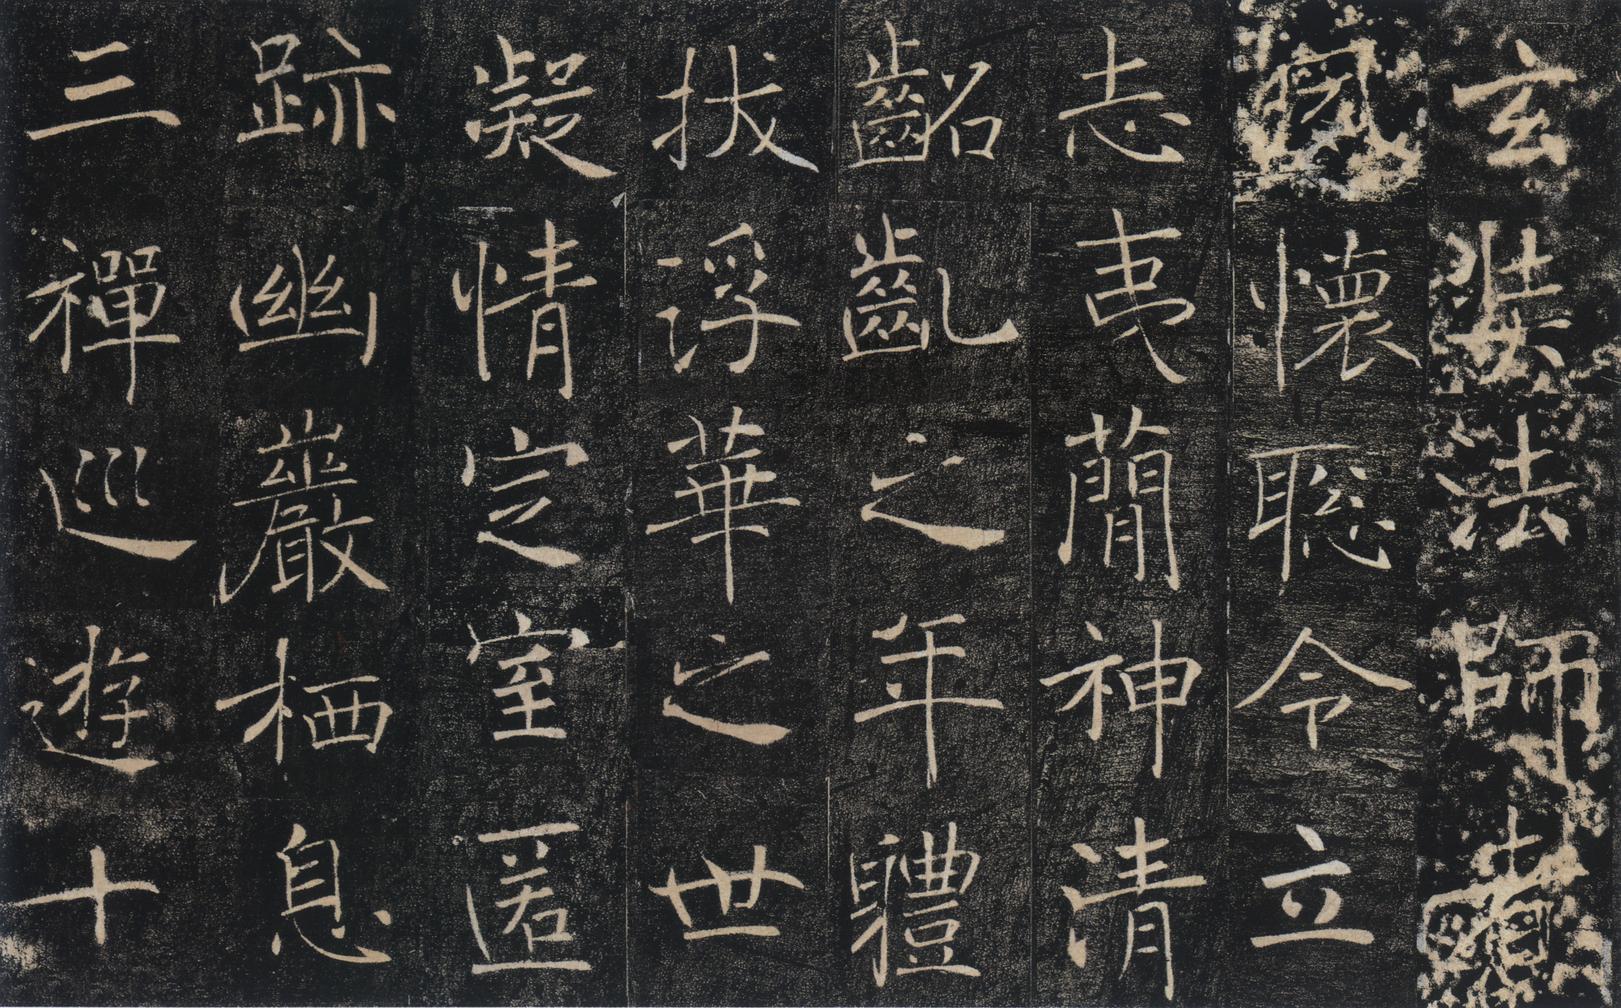 玄奘法師者
夙懷聰令立
志夷簡神清
齠齓之年體
拔浮華之世
凝情定室匿
跡幽巖栖息
三禪巡遊十